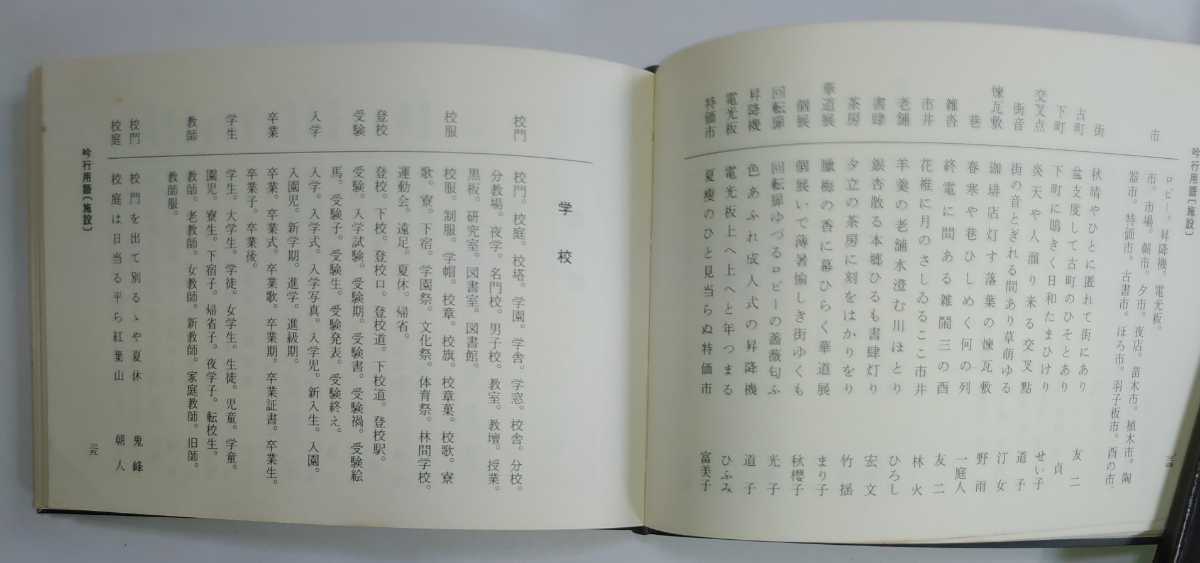 吟行用語〔施設〕
ロビー。昇降機。電光板。
市 市。市場。朝市。夕市。夜店。苗木市。植木市。陶
器市。特価市。古書市。ぼろ市。羽子板市。酉の市。
街 秋晴やひとに匿れて街にあり 友二
古町 盆支度して古町のひそとあり 貞
下町 下町に鵙きく日和たまひけり せい子
交叉点 炎天や人溜り来る交叉點 道子
街音 街の音とぎれる間あり草萌ゆる 汀女
煉瓦敷 珈琲店灯す落葉の煉瓦敷 野雨
巷 春寒や巷ひしめく何の列 一庭人
雑沓 終電に間ある雑鬧三の酉 友二
市井 花椎に月のさしゐるここ市井 林火
老舗 羊羹の老舗水澄む川ほとり ひろし
書肆 銀杏散る本郷ひるも書肆灯り 宏文
茶房 夕立の茶房に刻をはかりをり 竹揺
華道展 臘梅の香に幕ひらく華道展 まり子
個展 個展いで薄暑愉しき街ゆくも 秋櫻子
回転扉 回転扉ゆづるロビーの薔薇匂ふ 光子
昇降機 色あふれ成人式の昇降機 道子
電光板 電光板上へ上へと年つまる ひふみ
特価市 夏痩のひと見当らぬ特価市 富美子
学校
校門 校門。校庭。校塔。学園。学舎。学窓。校舎。分校。
分教場。夜学。名門校。男子校。教室。教壇。授業。
黒板。研究室。図書室。図書館。
校服 校服。制服。学帽。校章。校旗。校章菓。校歌。寮
歌。寮。下宿。学園祭。文化祭。体育祭。林間学校。
運動会。遠足。夏休。帰省。
登校 登校。下校。登校口。登校道。下校道。登校駅。
受験 受験。入学試験。受験期。受験書。受験禍。受験絵
馬。受験子。受験生。受験発表。受験終え。
入学 入学。入学式。入学写真。入学児。新入生。入園。
入園児。新学期。進学。進級期。
卒業 卒業。卒業式。卒業歌。卒業期。卒業証書。卒業生。
卒業子。卒業後。
学生 学生。大学生。学徒。女学生。生徒。児童。学童。
園児。寮生。下宿子。帰省子。夜学子。転校生。
教師 教師。老教師。女教師。新教師。家庭教師。旧師。
教師服。
校門 校門を出て別るゝや夏休 鬼峰
校庭 校庭は日当る平ら紅葉山 朝人
吟行用語〔施設〕